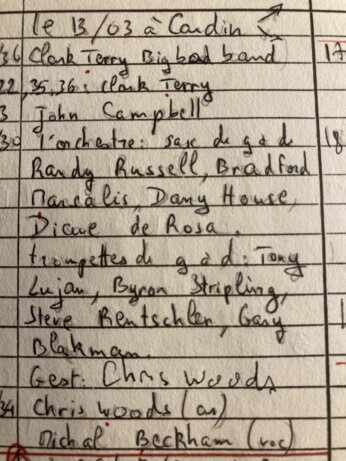 le 13/03 à Cardin
36 Clark Terry Big bad band 17
22, 35, 36: Clark Terry
3 John Campbell
30 l'orchestre: sax de g à d 18
Randy Russell, Bradford
Marsalis, Dany House,
de Rosa.
trompettes de g à d: Tony
Lujan, Byron Stripling,
Steve Rentschler, Gary
Blakman.
Gest: Chris Woods
34 Chris Woods (as)
Michal Beckham (voc)